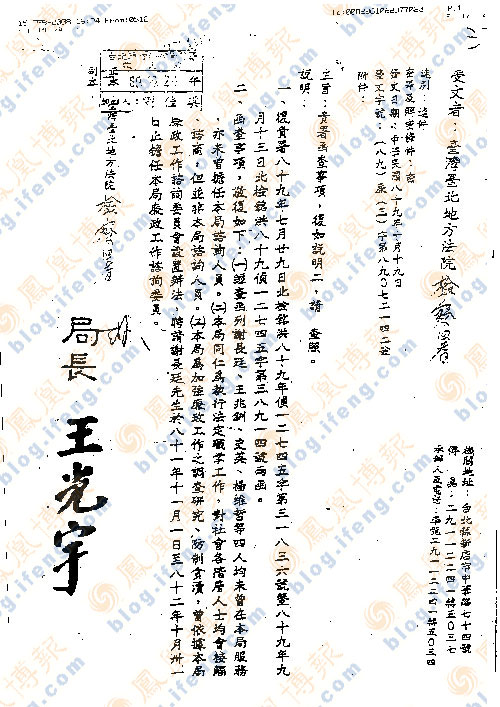 受文者：臺灣臺北地方法院檢察署
速別：速件
密等及解密條件：密
發文日期：中華民國八十九年十月十九日
發文字號：(八九)廉(二)字第八九〇七二一四二號
附件：
主旨：貴署函查事項，復如說明二，請 查照。
說明：
一、復貴署八十九年七月廿九日北檢銘洪八十九年偵一二七四五字第三一八三六號暨八十九年九
月十三日北檢銘洪八十九偵一二七四五字第三八九一四號兩函。
二、函查事項，敬復如下：(一)經查函列謝長廷、王兆釧、史英、楊維哲等四人均未曾在本局服務
，亦未曾擔任本局諮詢人員。(二)本局同仁為執行法定職掌工作，對社會各階層人士均會接觸
、諮商，但並非本局諮詢人員。(三)本局為加強廉政工作之調查研究、防制貪瀆，曾依據本局
廉政工作諮詢委員會設置辦法，聘請謝長廷先生於八十一年十一月一日至八十二年十月卅一
日止擔任本局廉政工作諮詢委員。
正本：臺灣臺北地方法院檢察署
副本：
局長 王光宇
機關地址：台北縣新店市中華路七十四號
傳 真：二九一一二二四一轉三〇三七
承辦人及電話：二九一一二二四一轉五〇三四
鳳凰博報
blog.ifeng.com